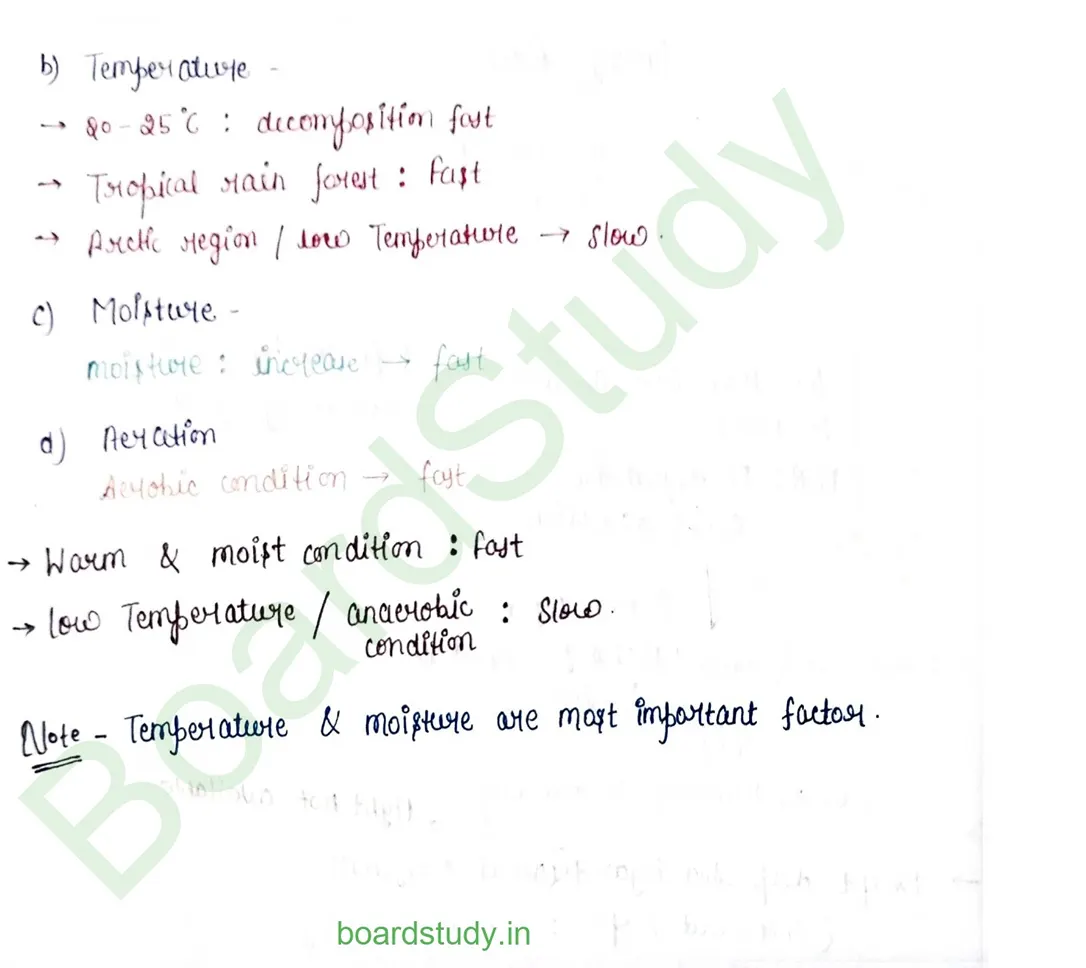 b) Temperature -
→ 20-25°C : decomposition fast
→ Tropical rain forest : fast
→ Arctic region / low Temperature → slow.
c) Moisture -
moisture : increase → fast
d) Aeration
Aerobic condition → fast
→ Warm & moist condition : fast
→ low Temperature / anaerobic : slow.
condition
Note - Temperature & moisture are most important factor.
BoardStudy
boardstudy.in